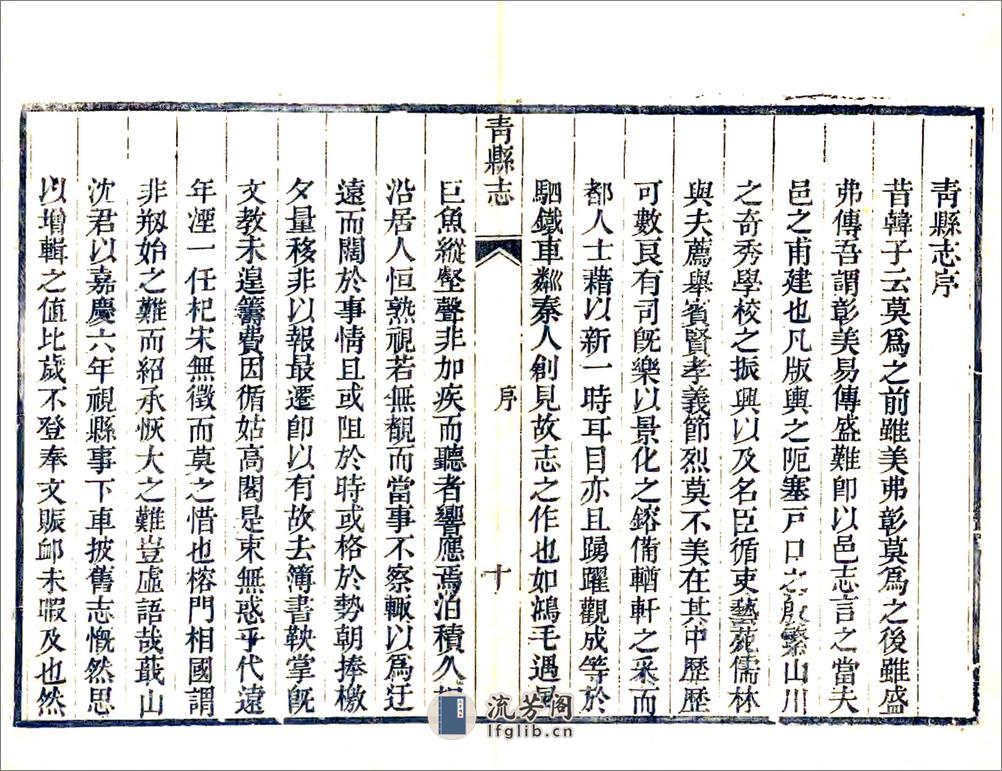 青縣志序
昔韓子云莫爲之前雖美弗彰莫爲之後雖盛
弗傳吾謂彰美易傳盛難卽以邑志言之當夫
邑之甫建也凡版輿之阨塞戸口之殷繁山川
之奇秀學校之振興以及名臣循吏藝苑儒林
與夫薦舉賓賢孝義節烈莫不美在其中歷歷
可數良有司旣樂以景化之鎔備輶軒之采而
都人士藉以新一時耳目亦且踴躍觀成等於
駟鐵車粼秦人創見故志之作也如鴻毛遇風
青縣志 序 十
巨魚縱壑聲非加疾而聽者響應焉洎積久相
沿居人恒熟視若無覩而當事不察輙以爲迂
遠而闊於事情且或阻於時或格於勢朝捧檄
夕量移非以報最遷卽以有故去簿書鞅掌旣
文教未遑籌費因循姑高閣是束無惑乎代遠
年湮一任杞宋無徵而莫之惜也榕門相國謂
非剏始之難而紹承恢大之難豈虛語哉蕺山
沈君以嘉慶六年視縣事下車披舊志慨然思
以增輯之值比歲不登奉文賑䘏未暇及也然
流芳阁
lfglib.cn